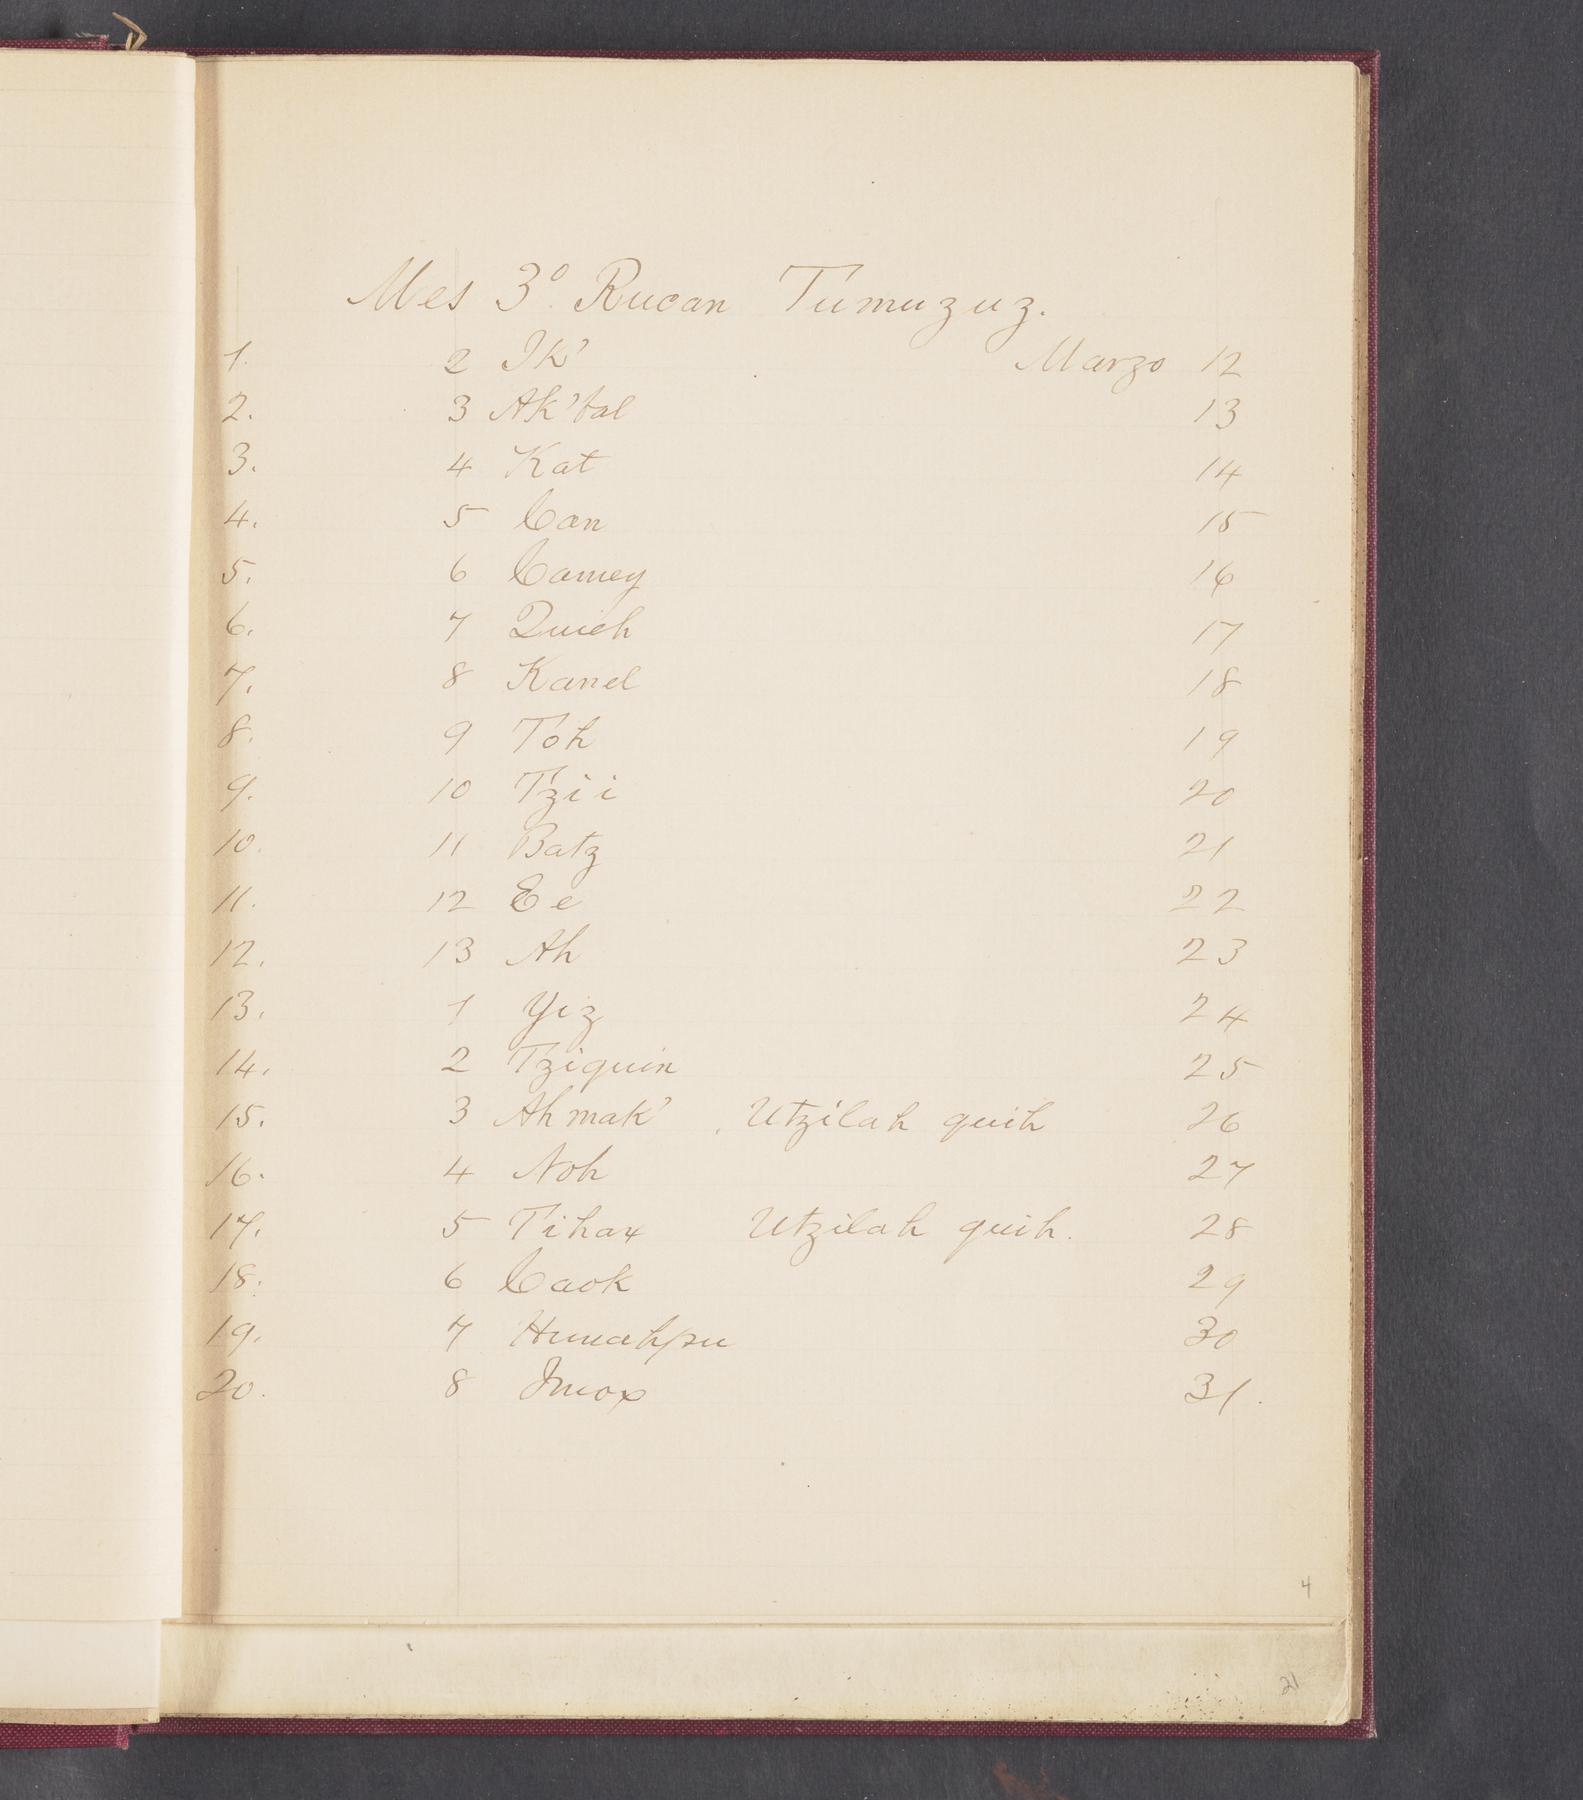 Mes 3º. Rucan Tumuzuz.
1. 2 Ik' Marzo 12
2. 3 Ak'bal 13
3. 4 Kat 14
4. 5 Can 15
5. 6 Camey 16
6. 7 Quieh 17
7. 8 Kanel 18
8. 9 Toh 19
9. 10 Tzii 20
10. 11 Batz 21
11. 12 Ee 22
12. 13 Ah 23
13. 1 Yiz 24
14. 2 Tziquin 25
15. 3 Ahmak' Utzilah quih 26
16. 4 Noh 27
17. 5 Tihax Utzilah quih. 28
18. 6 Caok 29
19. 7 Hunahpu 30
20. 8 Imox 31.
4
21